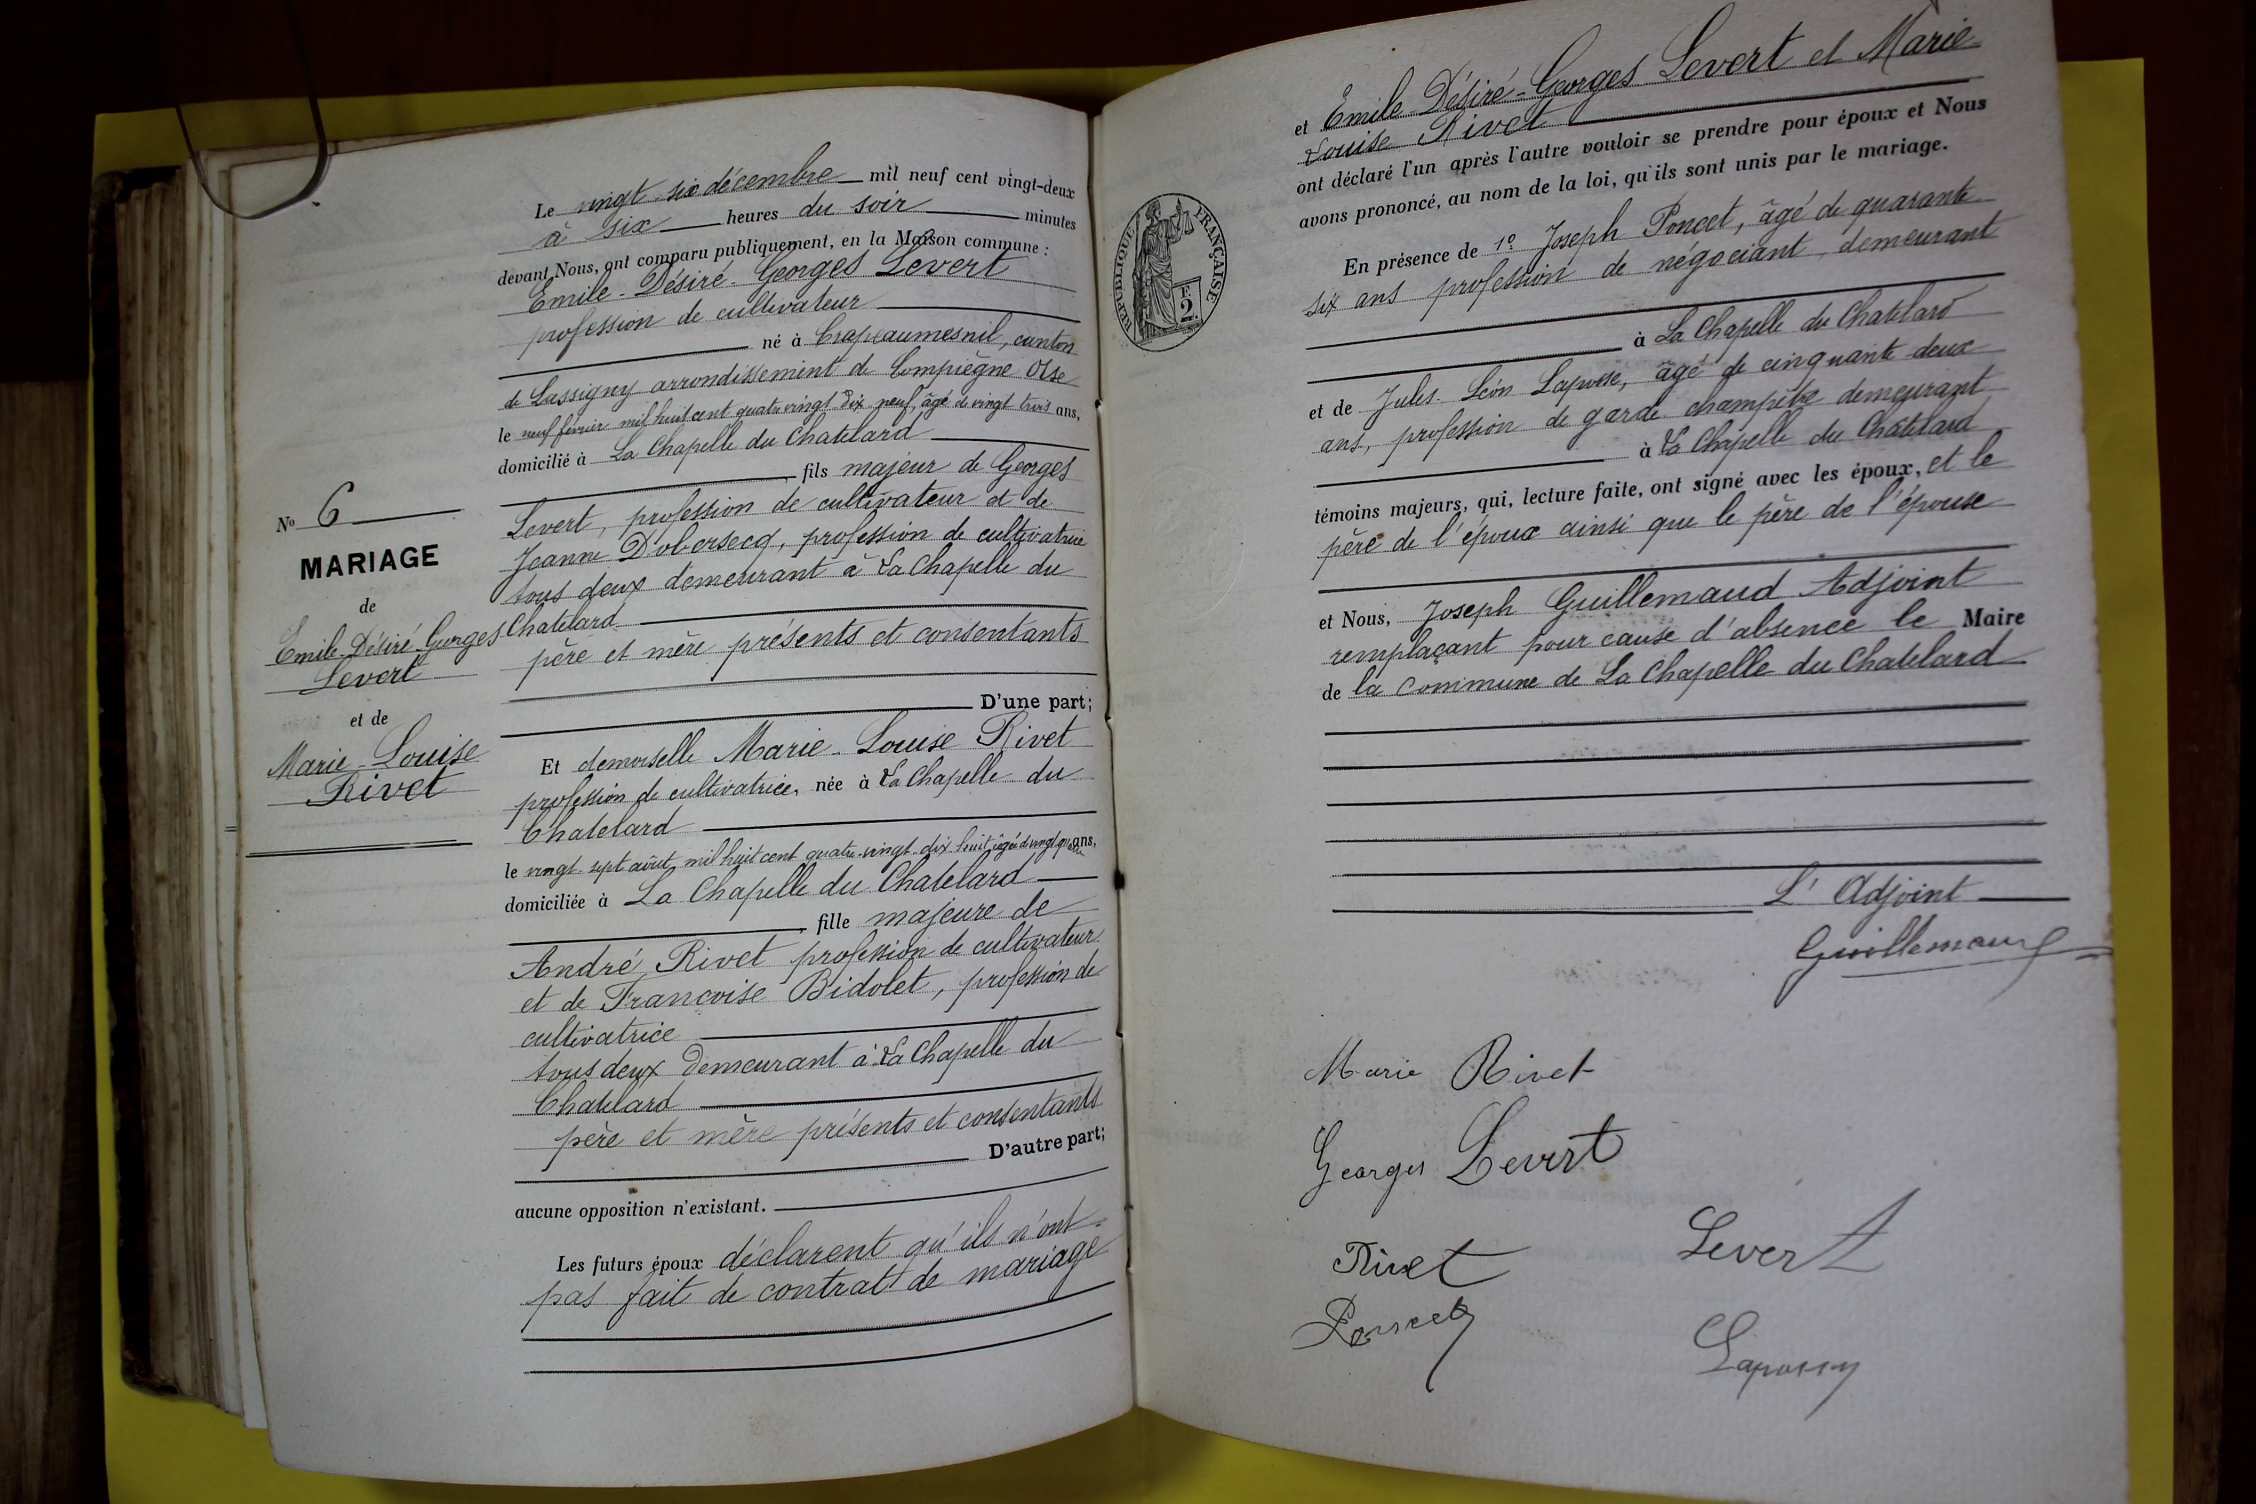 Le vingt-six décembre mil neuf cent vingt-deux
à six heures du soir minutes
devant Nous, ont comparu publiquement, en la Maison commune :
Emile-Désiré-Georges Levert
profession de cultivateur
né à Crapeaumesnil, canton
de Lassigny arrondissement de Compiègne Oise
le neuf février mil huit cent quatre vingt dix neuf, âgé de vingt trois ans,
domicilié à La Chapelle du Chatelard
fils majeur de Georges
Levert, profession de cultivateur et de
Jeanne Dobersecq, profession de cultivatrice
tous deux demeurant à La Chapelle du
Chatelard
père et mère présents et consentants
D'une part;
Nº 6
MARIAGE
de
Emile-Désiré-Georges
Levert
et de
Marie-Louise
Rivet
Et demoiselle Marie-Louise Rivet
profession de cultivatrice, née à La Chapelle du
Chatelard
le vingt-sept août mil huit cent quatre-vingt-dix huit âgée de vingt quatre ans,
domiciliée à La Chapelle du Chatelard
fille majeure de
André Rivet profession de cultivateur
et de Françoise Bidolet, profession de
cultivatrice
tous deux demeurant à La Chapelle du
Chatelard
père et mère présents et consentants
D'autre part;
aucune opposition n'existant.
Les futurs époux déclarent qu'ils n'ont
pas fait de contrat de mariage
et Emile-Désiré-Georges Levert et Marie
Louise Rivet
ont déclaré l'un après l'autre vouloir se prendre pour époux et Nous
avons prononcé, au nom de la loi, qu'ils sont unis par le mariage.
RÉPUBLIQUE FRANÇAISE
F.
2.
En présence de 1º Joseph Poncet, âgé de quarante
six ans profession de négociant, demeurant
à La Chapelle du Chatelard
et de Jules Léon, âgé de cinquante deux
ans, profession de garde champêtre demeurant
à La Chapelle du Chatelard
témoins majeurs, qui, lecture faite, ont signé avec les époux, et le
père de l'époux ainsi que le père de l'épouse
et Nous, Joseph Guillemaud Adjoint
remplaçant pour cause d'absence le Maire
de la commune de La Chapelle du Chatelard
L'Adjoint
Guillemaud
Marie Rivet
Georges Levert
Rivet Levert
Poncet